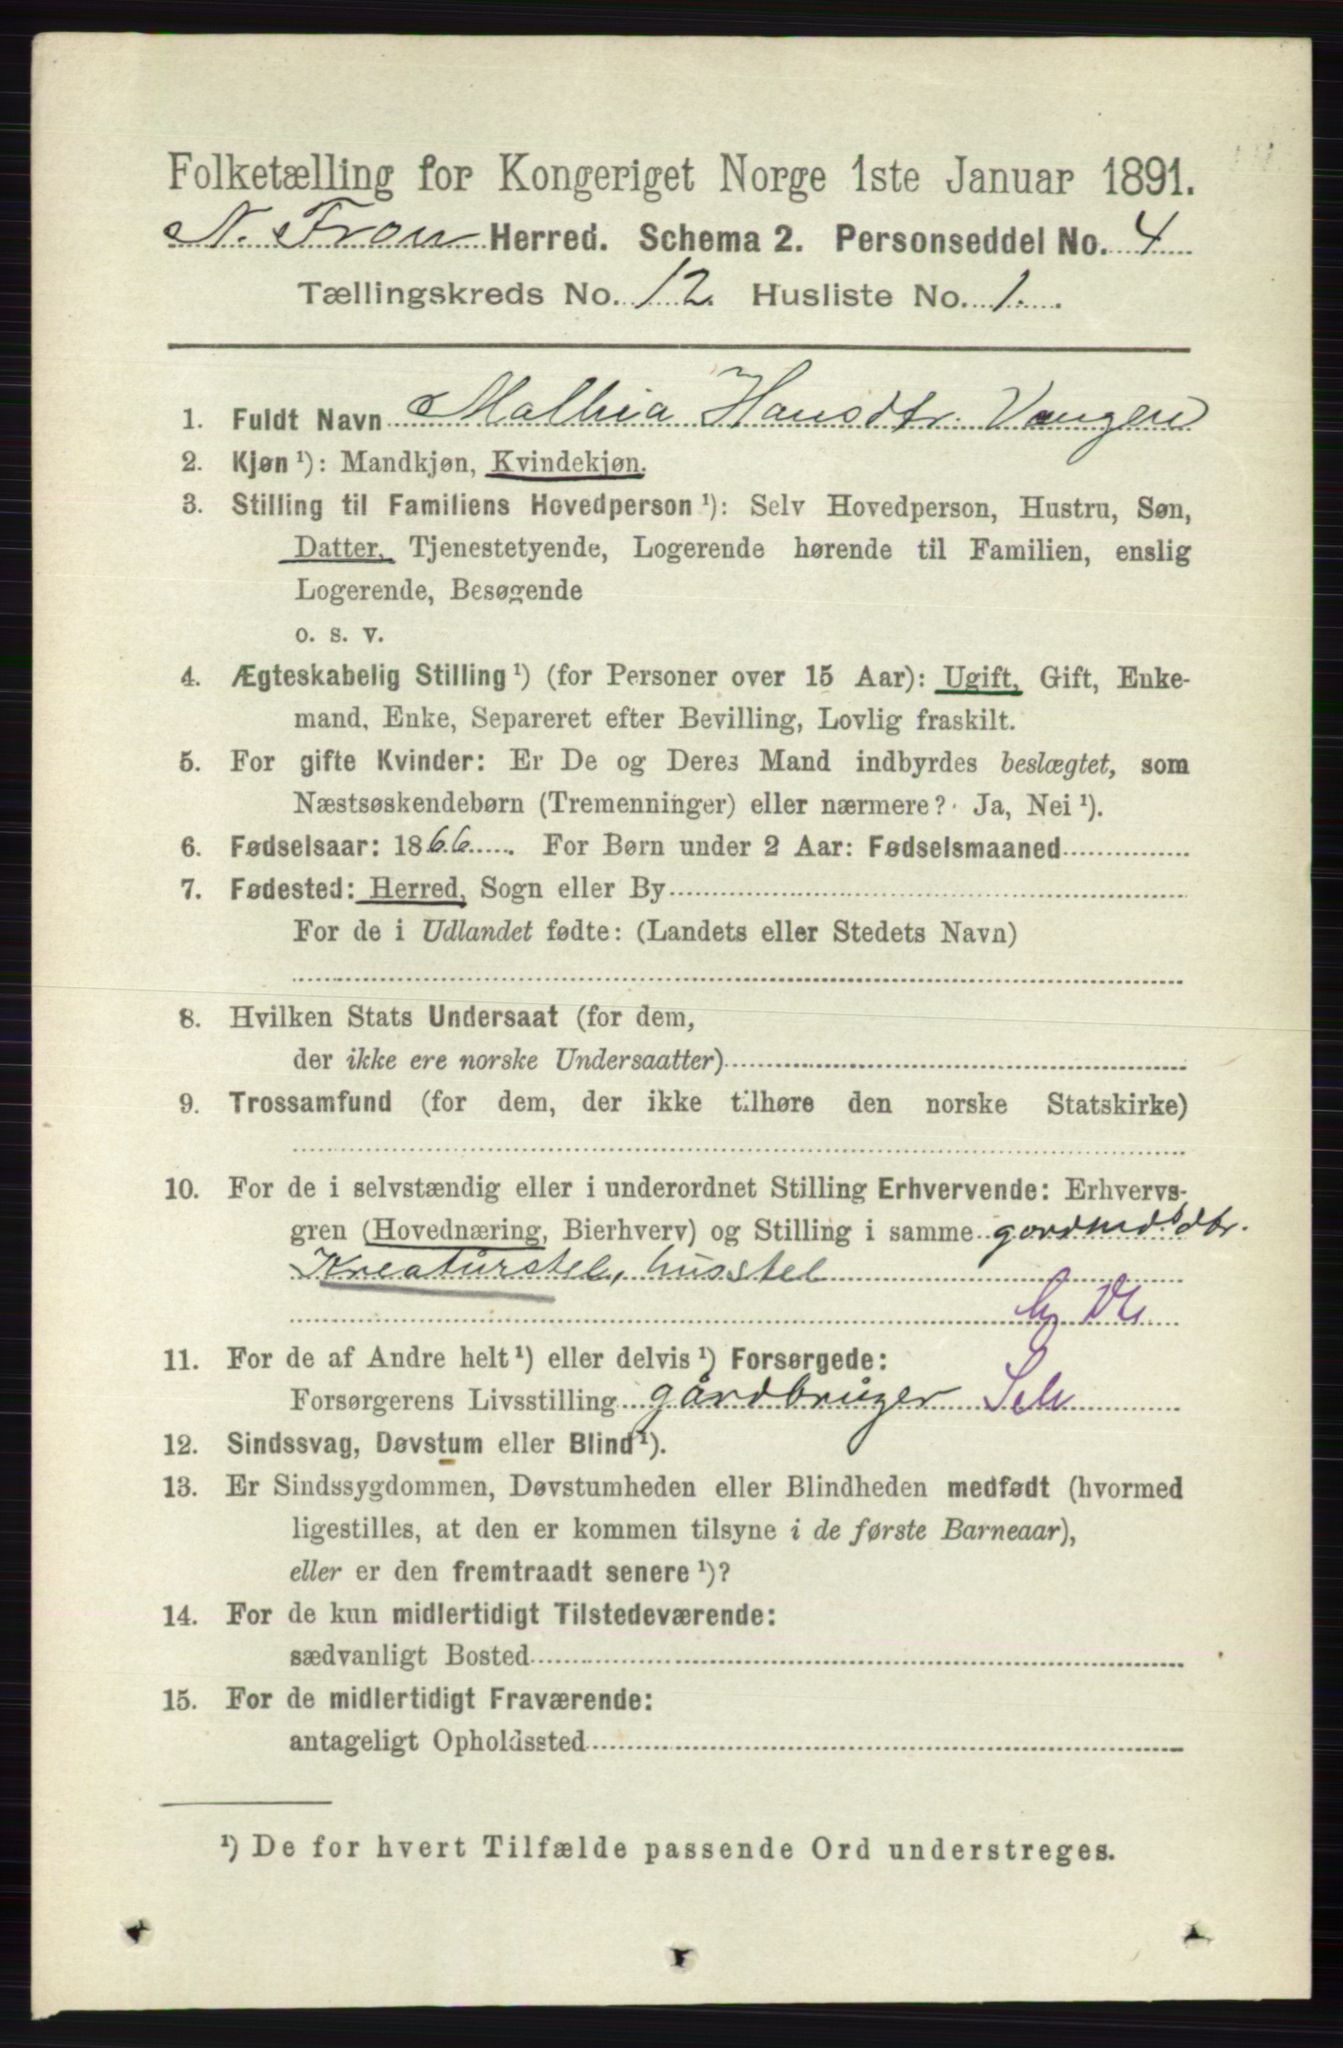 Folketælling for Kongeriget Norge 1ste Januar 1891.
N. Fron Herred. Schema 2. Personseddel No. 4
Tællingskreds No. 12. Husliste No. 1.
1. Fuldt Navn Mathia Hansdtr. Vangen
2. Kjøn ¹): Mandkjøn, Kvindekjøn.
3. Stilling til Familiens Hovedperson ¹): Selv Hovedperson, Hustru, Søn,
Datter, Tjenestetyende, Logerende hørende til Familien, enslig
Logerende, Besøgende
o. s. v.
4. Ægteskabelig Stilling ¹) (for Personer over 15 Aar): Ugift, Gift, Enke-
mand, Enke, Separeret efter Bevilling, Lovlig fraskilt.
5. For gifte Kvinder: Er De og Deres Mand indbyrdes beslægtet, som
Næstsøskendebørn (Tremenninger) eller nærmere? Ja, Nei ¹).
6. Fødselsaar: 1866 For Børn under 2 Aar: Fødselsmaaned
7. Fødested: Herred, Sogn eller By
For de i Udlandet fødte: (Landets eller Stedets Navn)
8. Hvilken Stats Undersaat (for dem,
der ikke ere norske Undersaatter)
9. Trossamfund (for dem, der ikke tilhøre den norske Statskirke)
10. For de i selvstændig eller i underordnet Stilling Erhvervende: Erhvervs-
gren (Hovednæring, Bierhverv) og Stilling i samme gordmdsdtr.
Kreaturstel, husstel
11. For de af Andre helt ¹) eller delvis ¹) Forsørgede:
Forsørgerens Livsstilling gårdbruger
12. Sindssvag, Døvstum eller Blind ¹).
13. Er Sindssygdommen, Døvstumheden eller Blindheden medfødt (hvormed
ligestilles, at den er kommen tilsyne i de første Barneaar),
eller er den fremtraadt senere ¹)?
14. For de kun midlertidigt Tilstedeværende:
sædvanligt Bosted
15. For de midlertidigt Fraværende:
antageligt Opholdssted
¹) De for hvert Tilfælde passende Ord understreges.